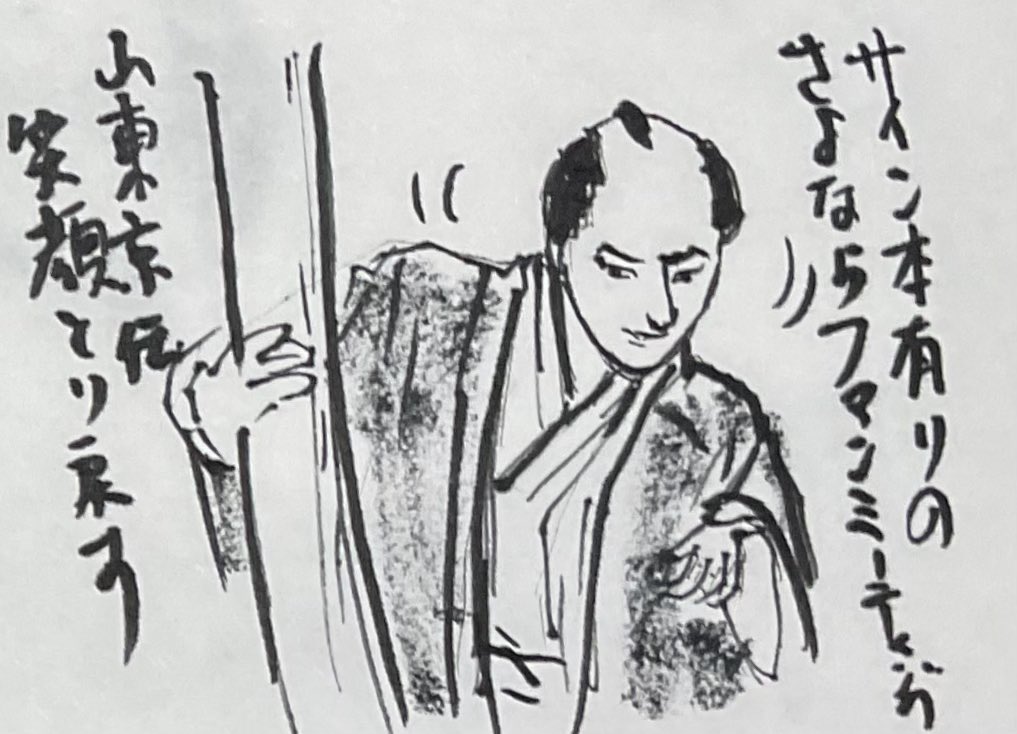 サイン本有りの
さよならファンミーティング
山東京伝
笑顔とり戻す